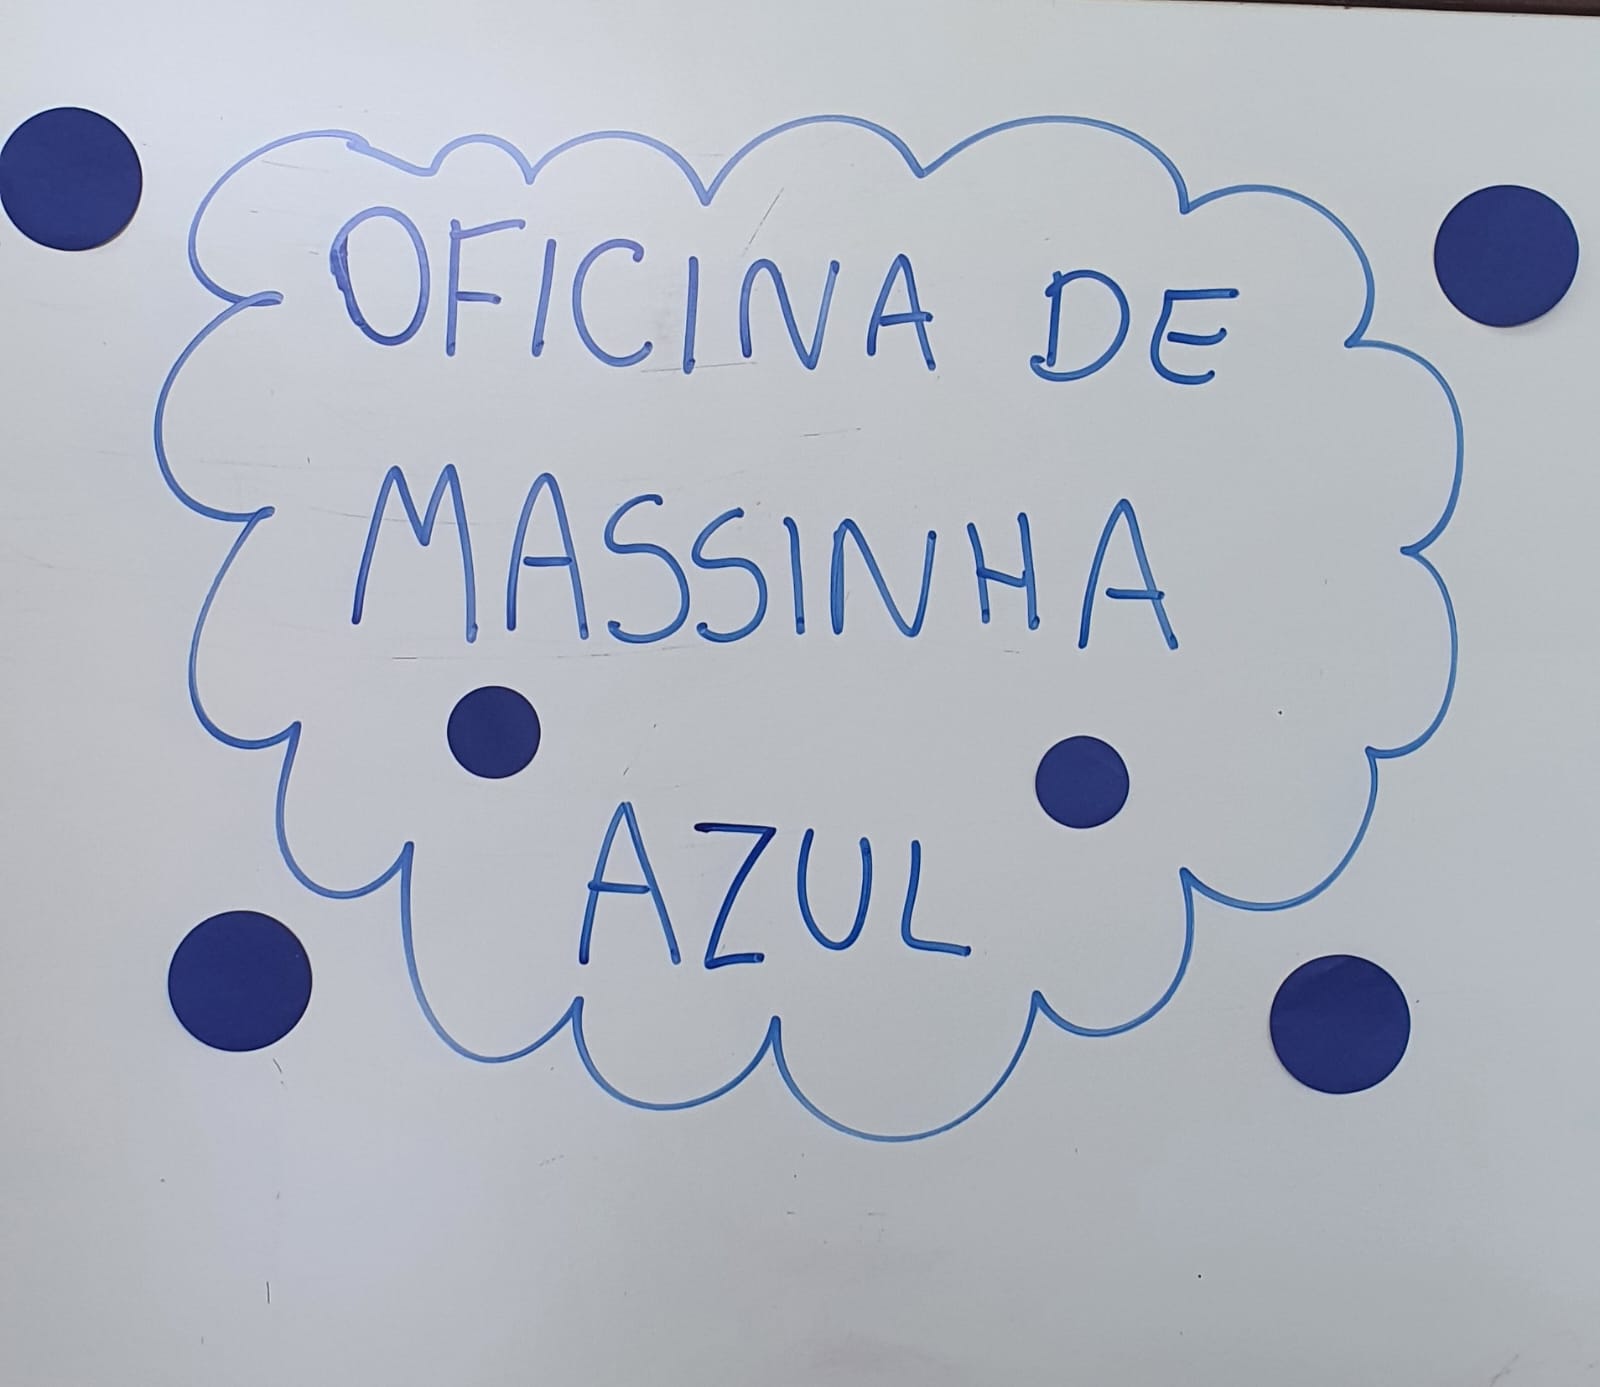 OFICINA DE
MASSINHA
AZUL